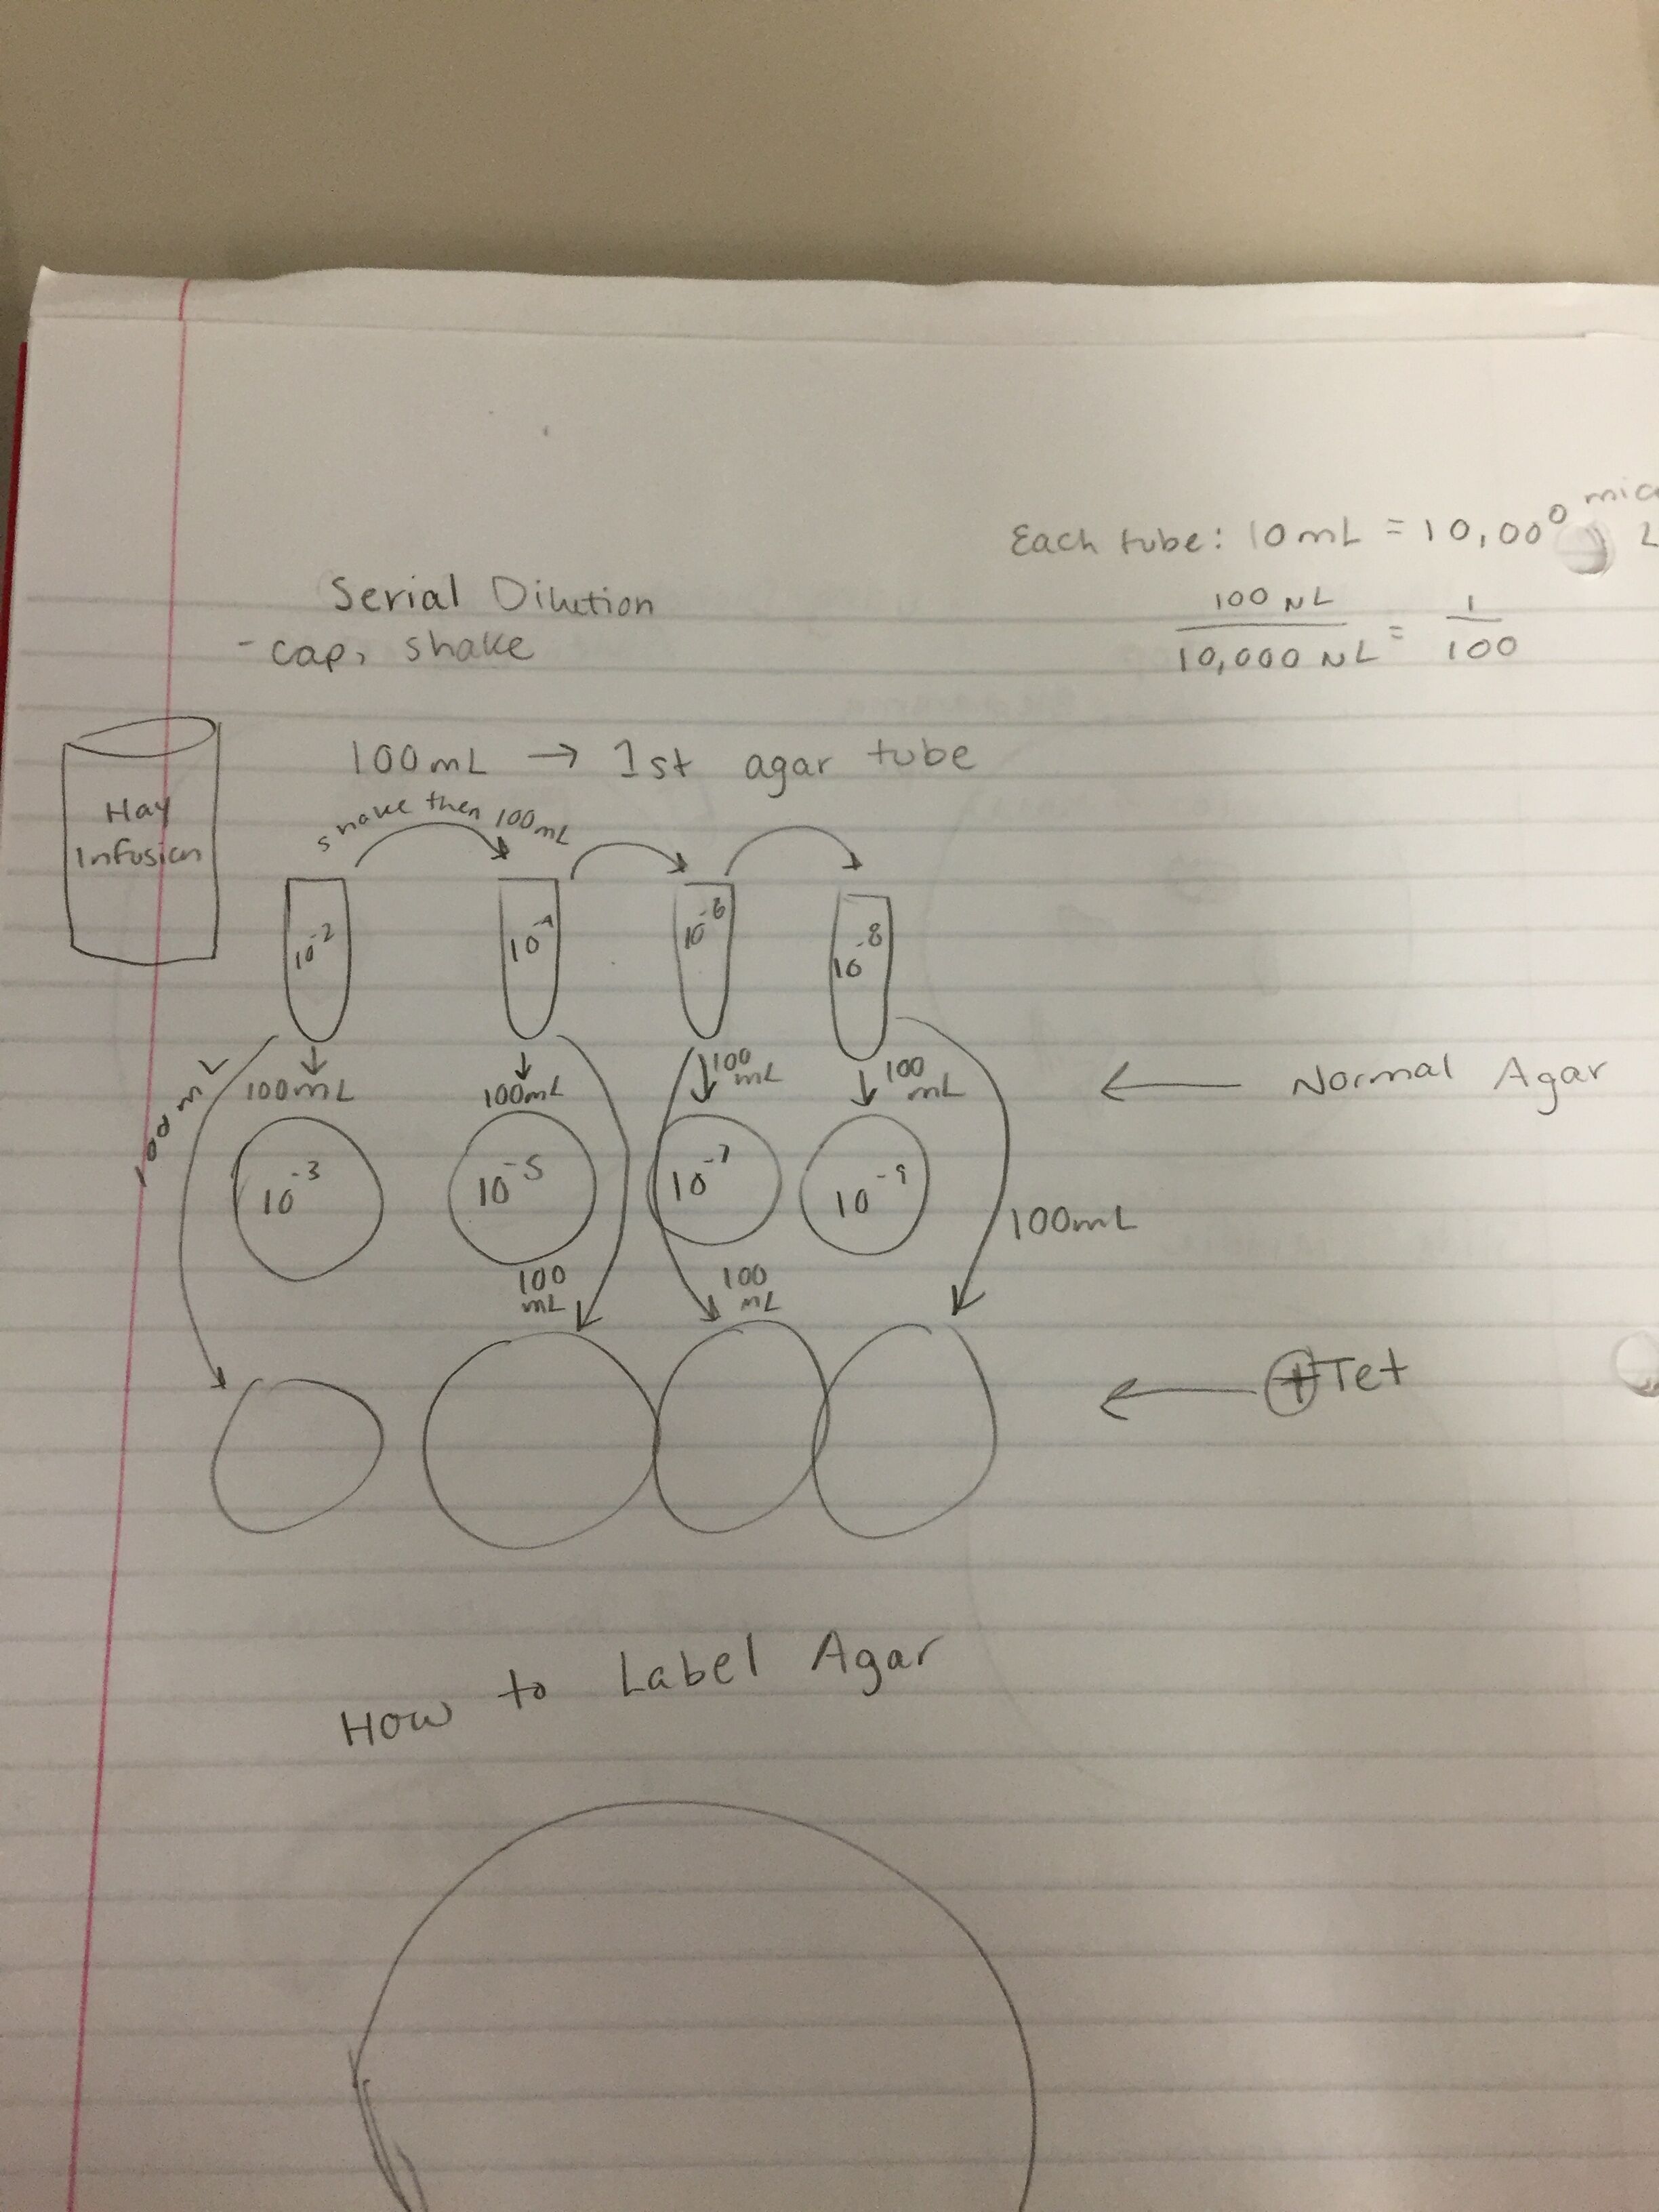 Each tube: 10 mL = 10,000
100 NL / 10,000 NL = 1 / 100
Serial Dilution
- cap, shake
Hay
Infusion
100 mL → 1st agar tube
shake then 100 mL
10⁻² 10⁻⁴ 10⁻⁶ 10⁻⁸
100 mL 100 mL 100 mL 100 mL 100 mL
← Normal Agar
10⁻³ 10⁻⁵ 10⁻⁷ 10⁻⁹
100 mL 100 mL 100 mL
← + Tet
How to Label Agar